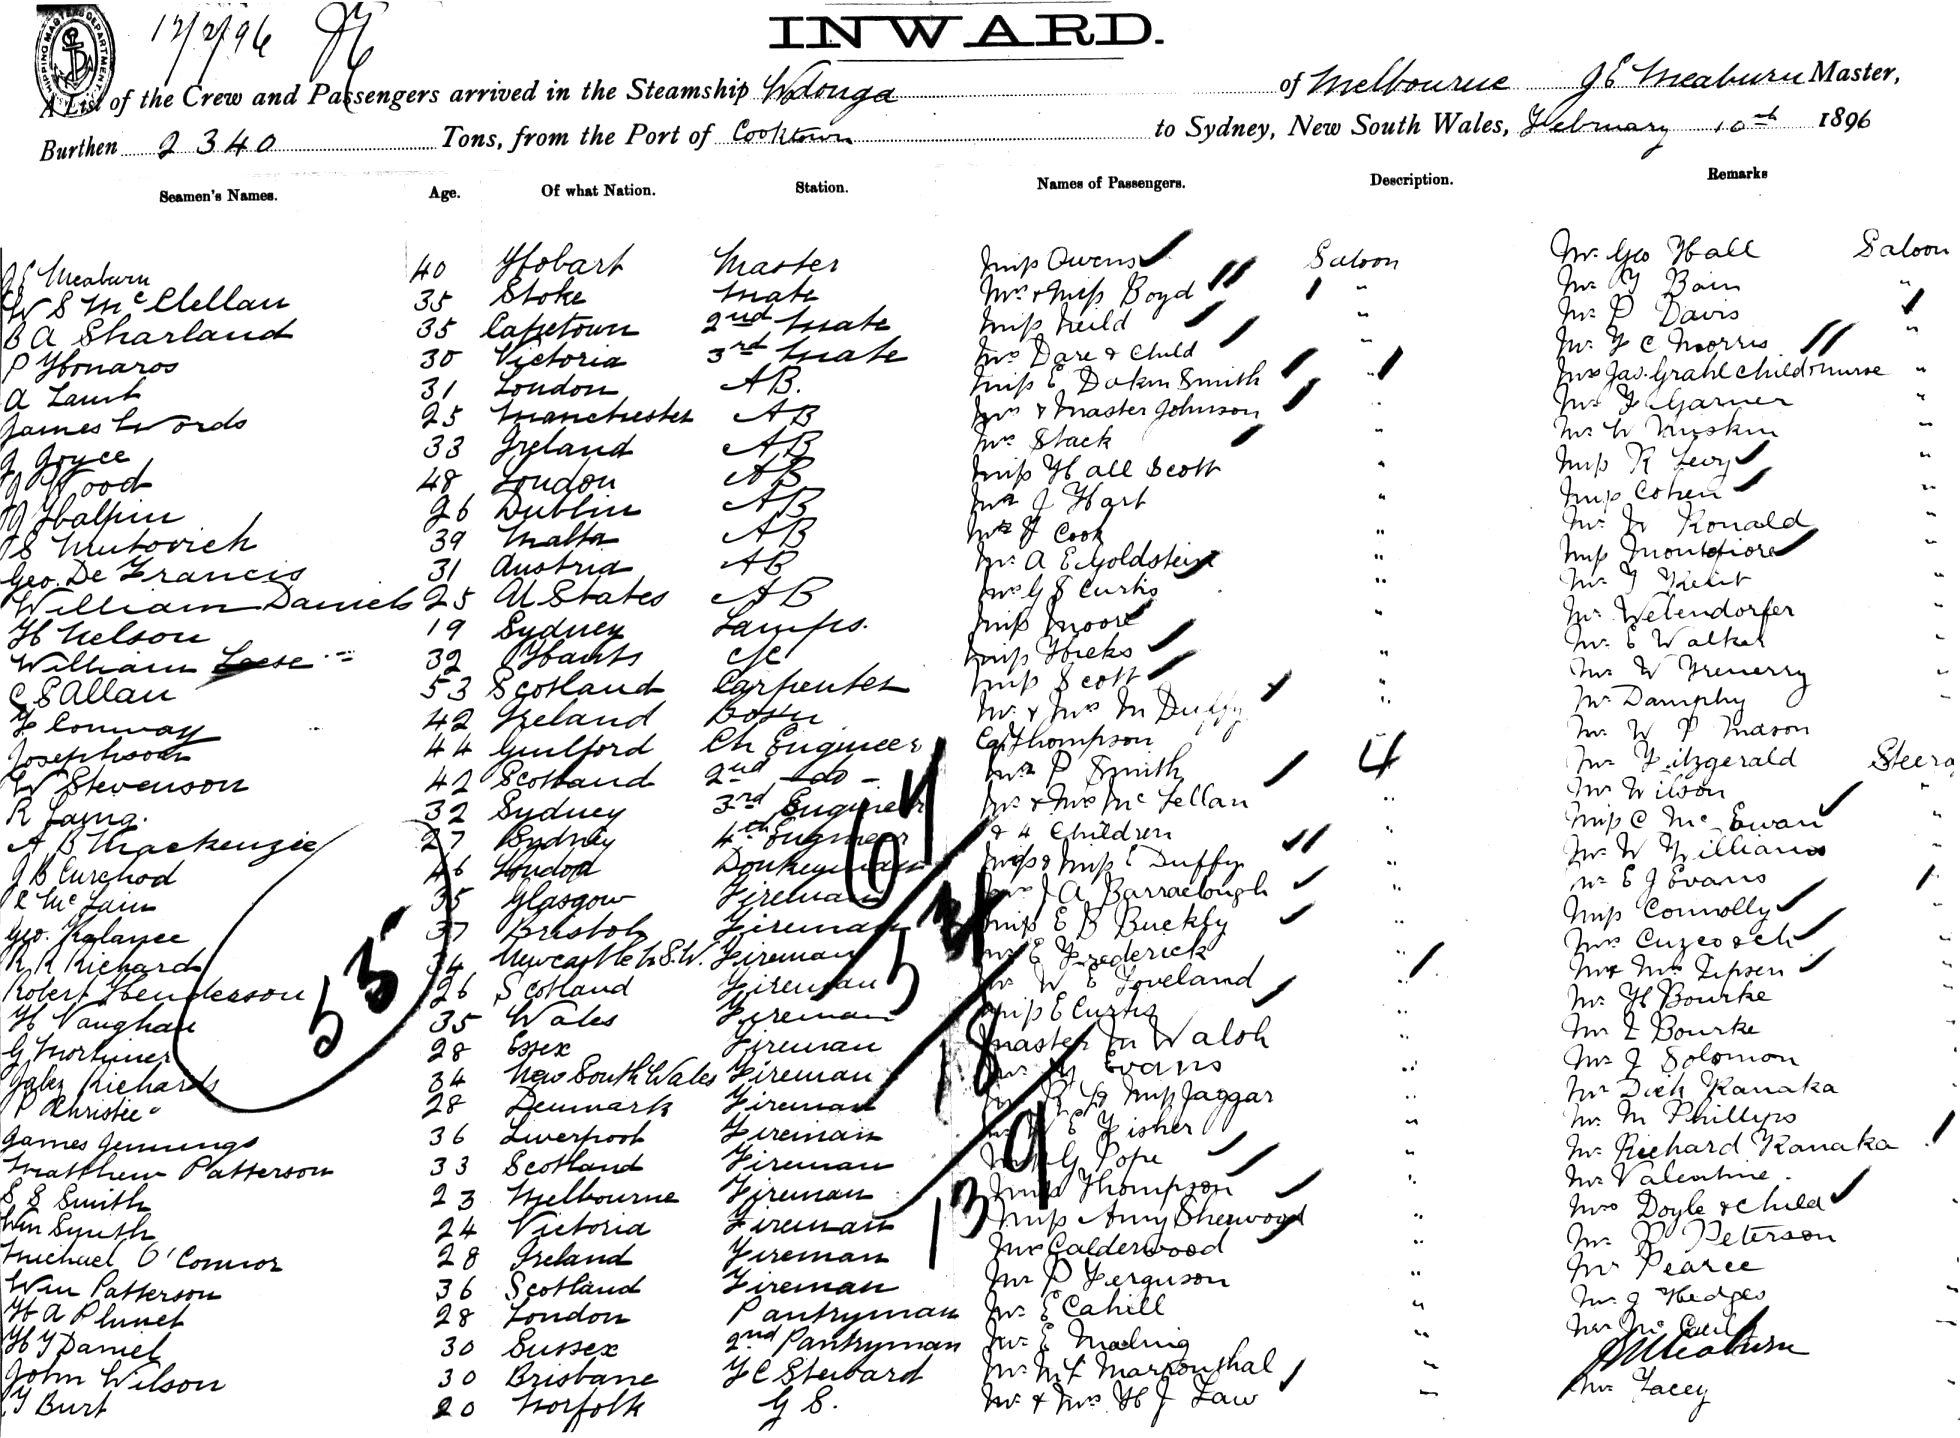 SHIPPING MASTERS DEPARTMENT
12/2/96
INWARD.
A List of the Crew and Passengers arrived in the Steamship Wodonga of Melbourne J E Meaburn Master,
Burthen 2340 Tons, from the Port of Cooktown to Sydney, New South Wales, February 10th 1896
Seamen's Names. Age. Of what Nation. Station. Names of Passengers. Description. Remarks
J E Meaburn 40 Hobart Master Miss Owens Saloon Mr Geo Hall Saloon
W S McClellan 35 Stoke Mate Mrs & Miss Boyd " Bain "
B A Sharland 35 Capetown 2nd Mate Miss Neild " Mr P Davis
P Honaros 30 Victoria 3rd Mate Mrs Dare & Child " Mr F C Morris "
A Lamb 31 London AB. Miss E Dakin Smith " Mrs Jas. Grahl child & nurse "
James Words 25 Manchester AB Mrs & Master Johnson " Mr F Garner "
J Joyce 33 Ireland AB Mrs Stack " Mr W Ruskin "
J Wood 48 London AB Miss Hall Scott " Miss R Levy "
J Halpin 26 Dublin AB Mr J Hart " Miss Cohen "
S Mutovich 39 Malta AB Cook " Ronald "
Geo. De Francis 31 Austria AB Mr A E Goldstein " Miss Montefiore "
William Daniels 25 U States AB Mrs G S Curtis Mr
H Nelson 19 Sydney Lamps. Miss Moore " Mr Welendorfer "
William Leese 32 Hants Miss Hicks " Mr E Walker "
C S Allan 53 Scotland Carpenter Miss Scott " Mr W Trenerry "
F Conway 42 Ireland Bosn Mr & Mrs M Duffy " Mr Damphy
Josephson 44 Guilford Ch Engineer Capt Thompson Mr W P Mason
W Stevenson 42 Scotland 2nd - do - P Smith 4 Mr Fitzgerald Steera
R Laing. 32 Sydney 3rd Engineer Mr & Mrs McLellan " Mr Wilson "
A B Mackenzie 27 Sydney 4th Engineer & 4 Children " Miss C McEwan
J B Curchod 46 London Donkeyman Miss & Miss E Duffy " Mr W Williams
R McLain 35 Glasgow Fireman J A Barraclough " Mr E J Evans
Geo. Kalanee 37 Bristol Fireman Miss E B Buckly " Miss Connolly
R R Richard 34 Newcastle N.S.W. Fireman Mr E Frederick Mrs
Robert Henderson 26 Scotland Fireman Mr W E Loveland Mr & Mrs Lipsen
H Vaughan 35 Wales Fireman Miss E Curtis Mr H Bourke
G Mortimer 28 Essex Fireman Master Walsh Bourke
Jabez Richards 34 New South Wales Fireman Evans Mr J Solomon
P Christie 28 Denmark Fireman Miss Jaggar Mr Dick Kanaka
James Jennings 36 Liverpool Fireman E Fisher Mr M Phillips
Matthew Patterson 33 Scotland Fireman G Pope Mr Richard Kanaka
S S Smith 23 Melbourne Fireman Miss Thompson Mr Valentine
Wm Smyth 24 Victoria Fireman Miss Amy Sherwood Mrs Doyle & Child
Michael O'Connor 28 Ireland Fireman Mr Calderwood Mr P Peterson
Wm Patterson 36 Scotland Fireman Mr P Ferguson Mr Pearce
H A Plunet 28 London Pantryman Mr E Cahill " Mr J Hedges
H J Daniel 30 Sussex 2nd Pantryman Mr E Maling "
John Wilson 30 Brisbane F C Steward "
J E Meaburn
T Burt 20 Norfolk G S. Mr & Mrs H J Law " Mr Facey
53
64
5
18
9
13